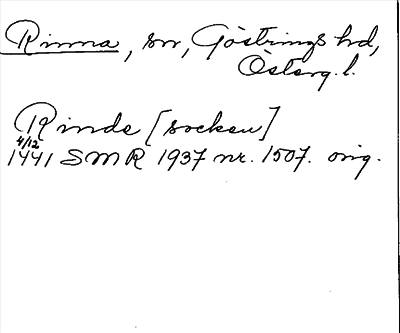 Rinna, sn, Göstrings hd,
Österg. l.
Rinda [socken]
4/12
1441 SMR 1937 nr. 1507. orig.